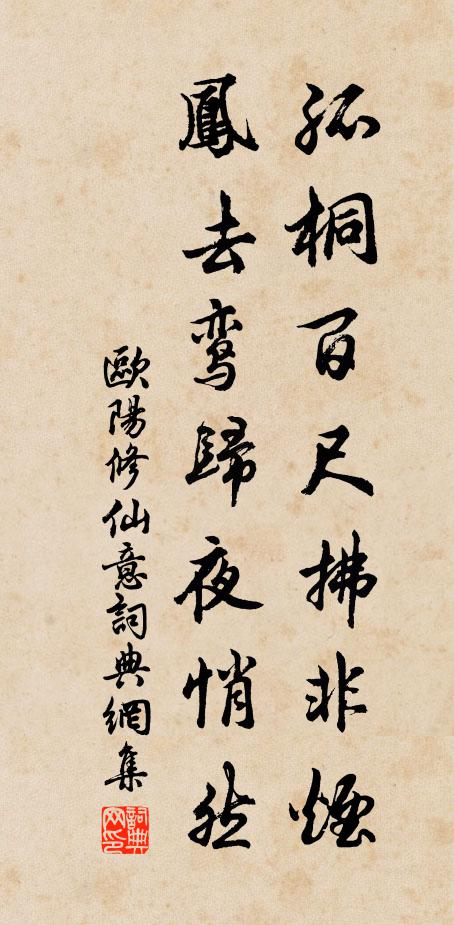 孤桐百尺拂非煙
鳳去鸾歸夜悄然
歐陽修仙意詞典網集
詞典网印